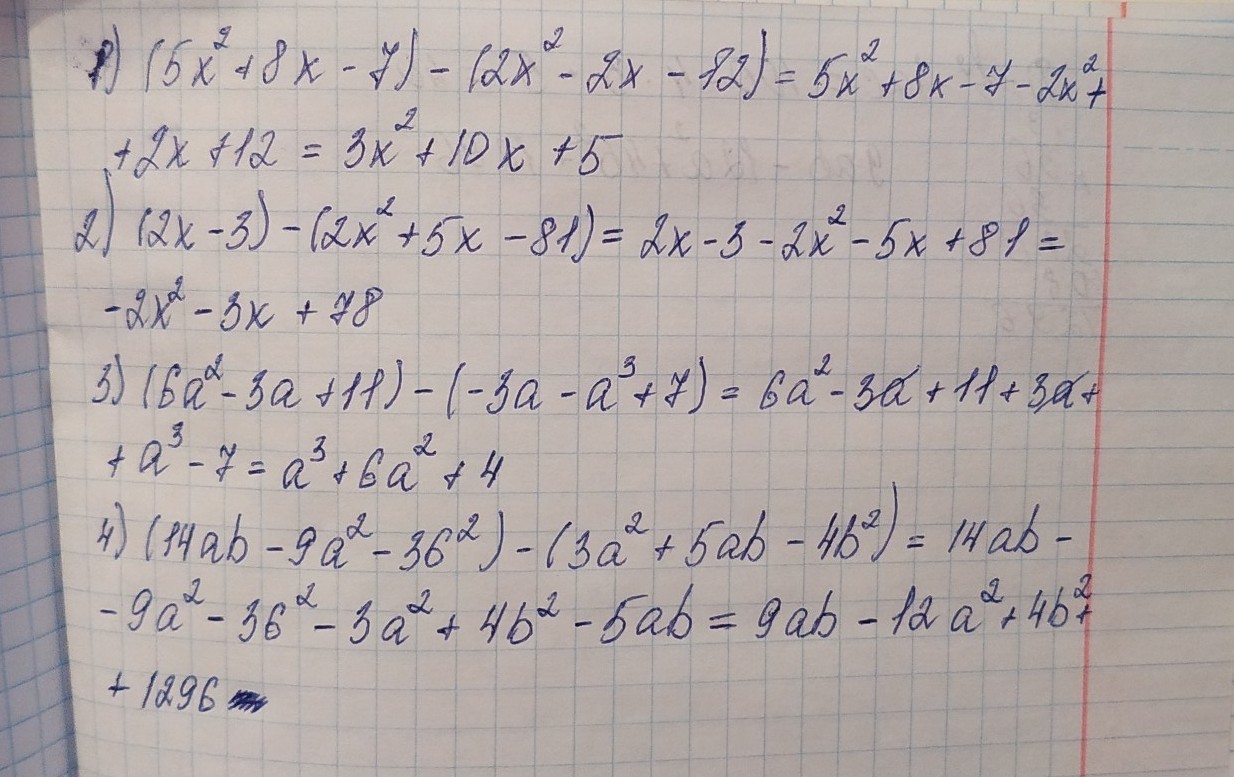 1) (5x² + 8x - 7) - (2x² - 2x - 12) = 5x² + 8x - 7 - 2x² +
+ 2x + 12 = 3x² + 10x + 5
2) (2x - 3) - (2x² + 5x - 81) = 2x - 3 - 2x² - 5x + 81 =
- 2x² - 3x + 78
3) (6a² - 3a + 11) - (-3a - a³ + 7) = 6a² - 3a + 11 + 3a +
+ a³ - 7 = a³ + 6a² + 4
4) (14ab - 9a² - 36²) - (3a² + 5ab - 4b²) = 14ab -
- 9a² - 36² - 3a² + 4b² - 5ab = 9ab - 12a² + 4b² +
+ 1296